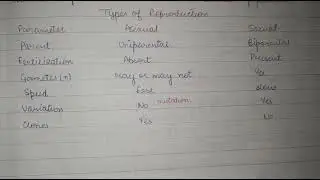 Types of Reproduction
Parameter Asexual Sexual
Parent Uniparental Biparental
Fertilization Absent Present
Gametes (n) may or may not Yes
Speed Fast slow
Variation No mutation Yes
Clones Yes No